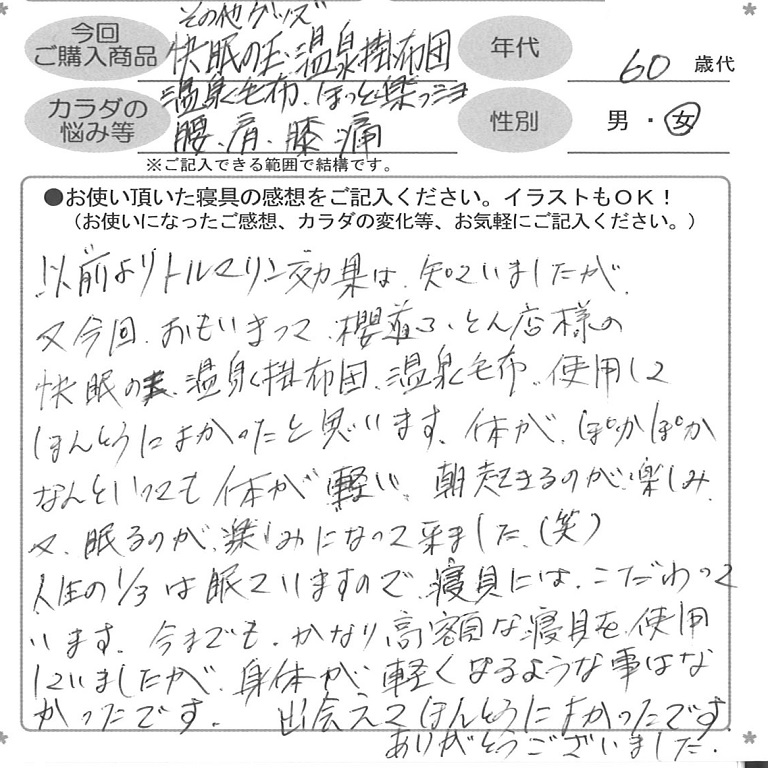 その他グッズ
今回
ご購入商品
快眠の玉 温泉掛布団
温泉毛布、ほっと楽っシヨ
年代
60 歳代
カラダの
悩み等
腰、肩、膝 痛
性別
男・女
※ご記入できる範囲で結構です。
●お使い頂いた寝具の感想をご記入ください。イラストもOK!
(お使いになったご感想、カラダの変化等、お気軽にご記入ください。)
以前よりトルマリン効果は、知っていましたが、
又今回、おもいきって、櫻道ふとん店様の
快眠の玉、温泉掛布団、温泉毛布、使用して
ほんとうによかったと思います、体が、ぽかぽか
なんといっても体が軽い、朝起きるのが楽しみ、
又、眠るのが、楽しみになって来ました、(笑)
人生の1/3は眠ていますので、寝具には、こだわって
います、今までも、かなり高額な寝具を、使用
していましたが、身体が、軽くなるような事はな
かったです。 出会えてほんとうによかったです
ありがとうございました.